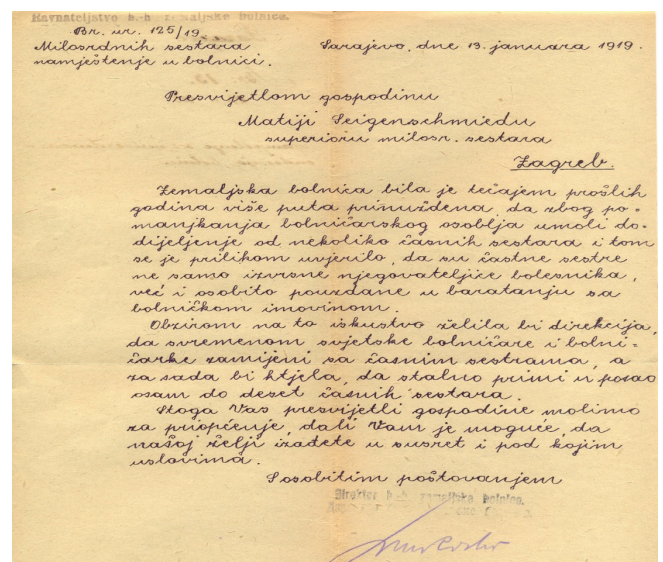 Ravnateljstvo b.-h. zemaljske bolnice.
Br. ur. 125/19.
Milosrdnih sestara
namještenje u bolnici.
Sarajevo, dne 13. januara 1919.
Presvijetlom gospodinu
Matiji Seigenschmiedu
superioru milosr. sestara
Zagreb.
Zemaljska bolnica bila je tečajem prošlih
godina više puta prinuždena, da zbog po-
manjkanja bolničarskog osoblja umoli do-
dijeljenje od nekoliko časnih sestara i tom
se je prilikom uvjerilo, da su častne sestre
ne samo izvrsne njegovateljice bolesnika,
već i osobito pouzdane u baratanju sa
bolničkom imovinom.
Obzirom na to iskustvo želila bi direkcija,
da svremenom svjetske bolničare i bolni-
čarke zamijeni sa časnim sestrama, a
za sada bi htjela, da stalno primi u posao
osam do deset časnih sestara.
Stoga Vas presvijetli gospodine molimo
za priopćenje, dali Vam je moguće, da
našoj želji izađete u susret i pod kojim
uslovima.
S osobitim poštovanjem
Direktor b.-h. zemaljske bolnice.